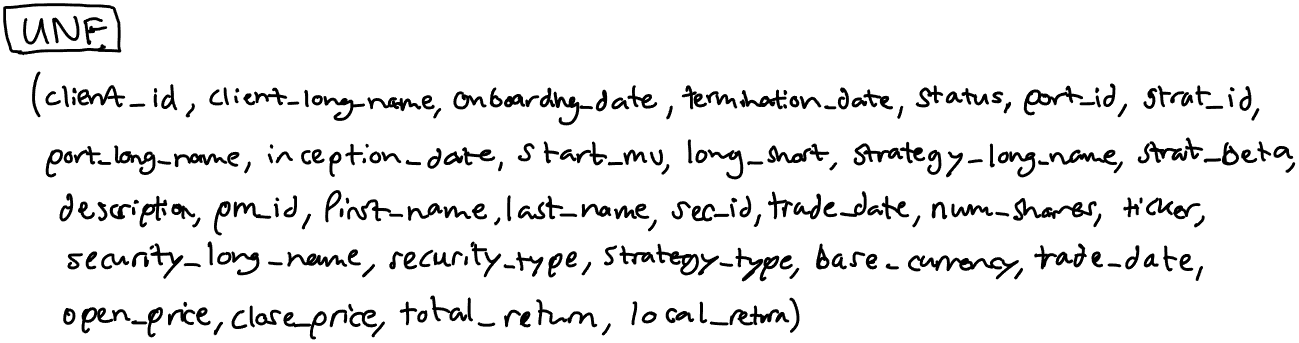 UNF
(client_id, client_long_name, onboarding_date, termination_date, status, port_id, strat_id,
port_long_name, inception_date, start_mv, long_short, strategy_long_name, strat_beta,
description, pm_id, first_name, last_name, sec_id, trade_date, num_shares, ticker,
security_long_name, security_type, strategy_type, base_currency, trade_date,
open_price, close_price, total_return, local_return)